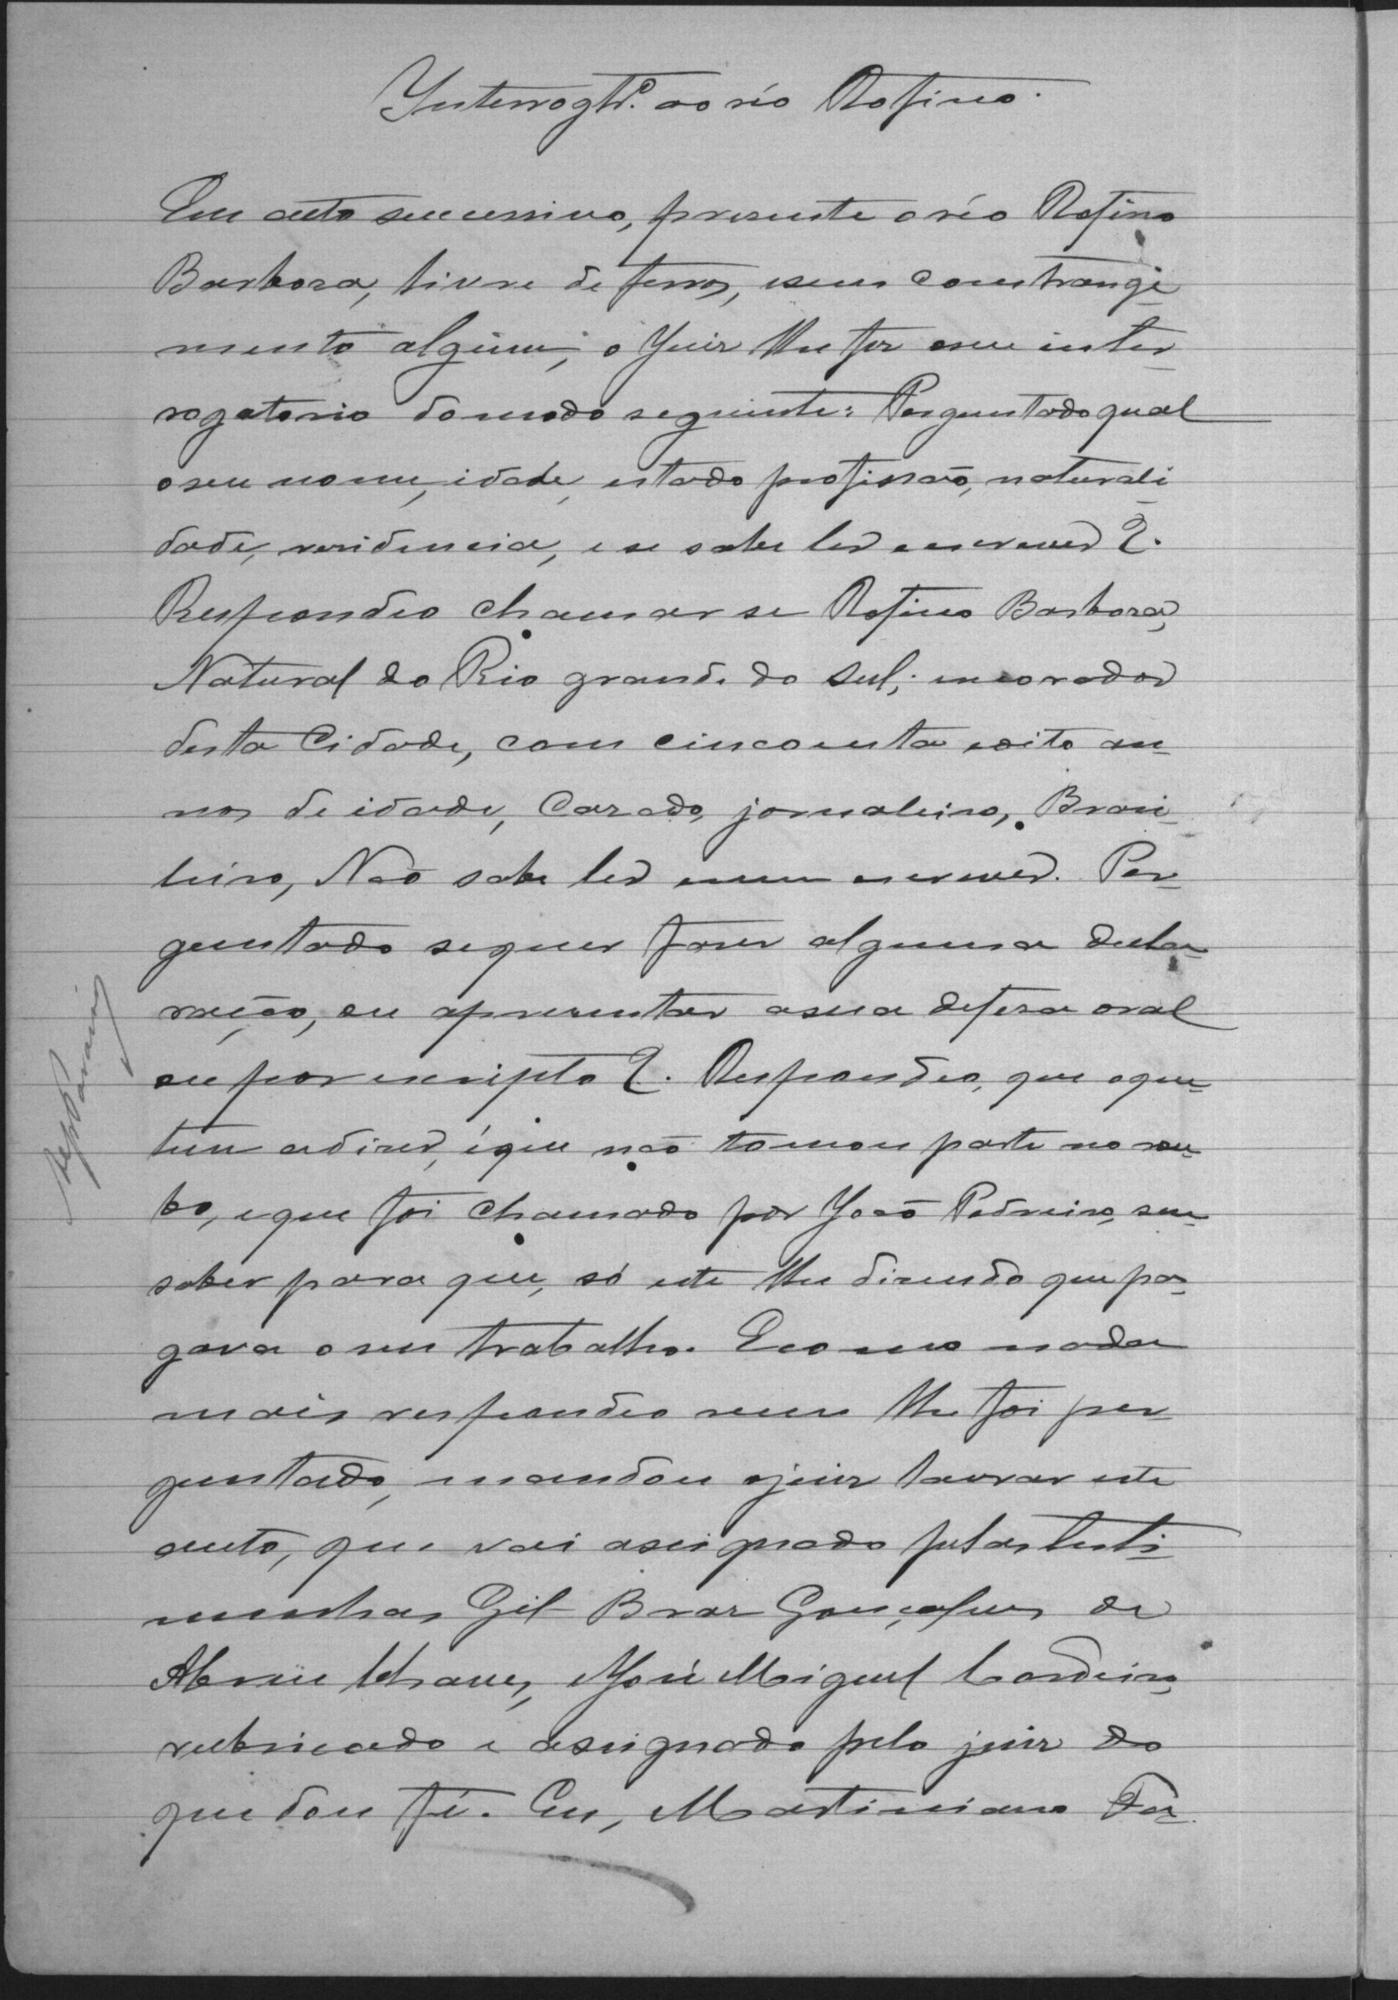 Interrogtº. ao réo Rofino.
Em acto successivo, presente o réo Rofino
Barboza, livre de ferros, e sem constrangi
mento algum, o Juiz lhe fez o seu inter
rogatorio do modo seguinte: Perguntado qual
o seu nome, idade, estado, profissão, naturali
dade, residencia, e se sabe ler e escrever?
Respondeo chamar se Rofino Barboza,
Natural do Rio grande do Sul; morador
desta Cidade, com cincoenta e oito an
nos de idade, Cazado, jornaleiro, Brazi
leiro, Não sabe ler e nem escrever. Per
guntado se quer fazer alguma decla
ração, ou apresentar a sua defeza oral
ou por escripto? Respondeo, que o que
tem a dizer, é que não tomou parte no rou
bo, e que foi chamado por João Pedreiro, sem
saber para que, só este lhe dizendo que pa
gava o seu trabalho. E como nada
mais respondeo nem lhe foi per
guntado, mandou o juiz lavrar este
auto, que vai assignado pelas testi
munhas Gil Braz Gonçalves de
Abreu Chaves, e José Miguel Cordeiro,
rubricado e assignado pelo juiz do
que dou fé. Eu, Martiniano Fer